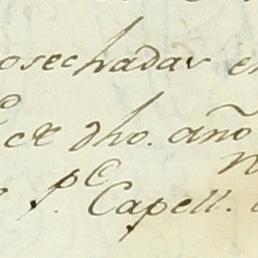 osechadas en
dho. año
p.e Capell.